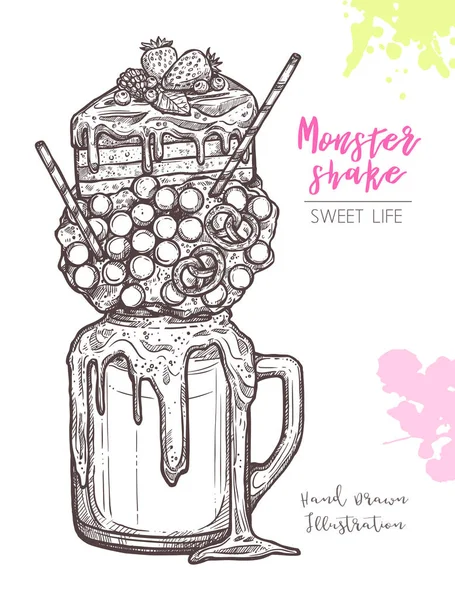 Monster
shake
SWEET LIFE
Hand Drawn
Illustration